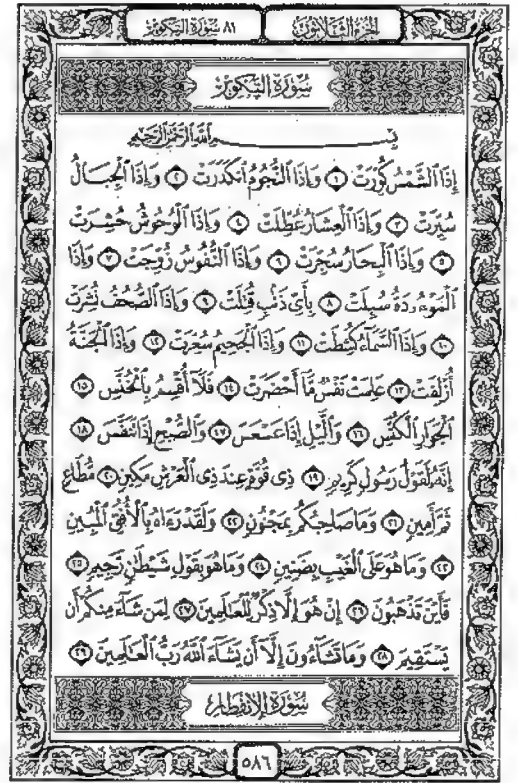 الجزء الثلاثون ٨١ سورة التكوير
سورة التكوير
بسم الله الرحمن الرحيم
إِذَا ٱلشَّمْسُ كُوِّرَتْ ١ وَإِذَا ٱلنُّجُومُ ٱنكَدَرَتْ ٢ وَإِذَا ٱلْجِبَالُ
سُيِّرَتْ ٣ وَإِذَا ٱلْعِشَارُ عُطِّلَتْ ٤ وَإِذَا ٱلْوُحُوشُ حُشِرَتْ
٥ وَإِذَا ٱلْبِحَارُ سُجِّرَتْ ٦ وَإِذَا ٱلنُّفُوسُ زُوِّجَتْ ٧ وَإِذَا
ٱلْمَوْءُۥدَةُ سُئِلَتْ ٨ بِأَىِّ ذَنۢبٍ قُتِلَتْ ٩ وَإِذَا ٱلصُّحُفُ نُشِرَتْ
١٠ وَإِذَا ٱلسَّمَآءُ كُشِطَتْ ١١ وَإِذَا ٱلْجَحِيمُ سُعِّرَتْ ١٢ وَإِذَا ٱلْجَنَّةُ
أُزْلِفَتْ ١٣ عَلِمَتْ نَفْسٌ مَّآ أَحْضَرَتْ ١٤ فَلَآ أُقْسِمُ بِٱلْخُنَّسِ ١٥
ٱلْجَوَارِ ٱلْكُنَّسِ ١٦ وَٱلَّيْلِ إِذَا عَسْعَسَ ١٧ وَٱلصُّبْحِ إِذَا تَنَفَّسَ ١٨
إِنَّهُۥ لَقَوْلُ رَسُولٍ كَرِيمٍ ١٩ ذِى قُوَّةٍ عِندَ ذِى ٱلْعَرْشِ مَكِينٍ ٢٠ مُّطَاعٍ
ثَمَّ أَمِينٍ ٢١ وَمَا صَاحِبُكُم بِمَجْنُونٍ ٢٢ وَلَقَدْ رَءَاهُ بِٱلْأُفُقِ ٱلْمُبِينِ
٢٣ وَمَا هُوَ عَلَى ٱلْغَيْبِ بِضَنِينٍ ٢٤ وَمَا هُوَ بِقَوْلِ شَيْطَٰنٍ رَّجِيمٍ ٢٥
فَأَيْنَ تَذْهَبُونَ ٢٦ إِنْ هُوَ إِلَّا ذِكْرٌ لِّلْعَٰلَمِينَ ٢٧ لِمَن شَآءَ مِنكُمْ أَن
يَسْتَقِيمَ ٢٨ وَمَا تَشَآءُونَ إِلَّآ أَن يَشَآءَ ٱللَّهُ رَبُّ ٱلْعَٰلَمِينَ ٢٩
سورة الانفطار
٥٨٦